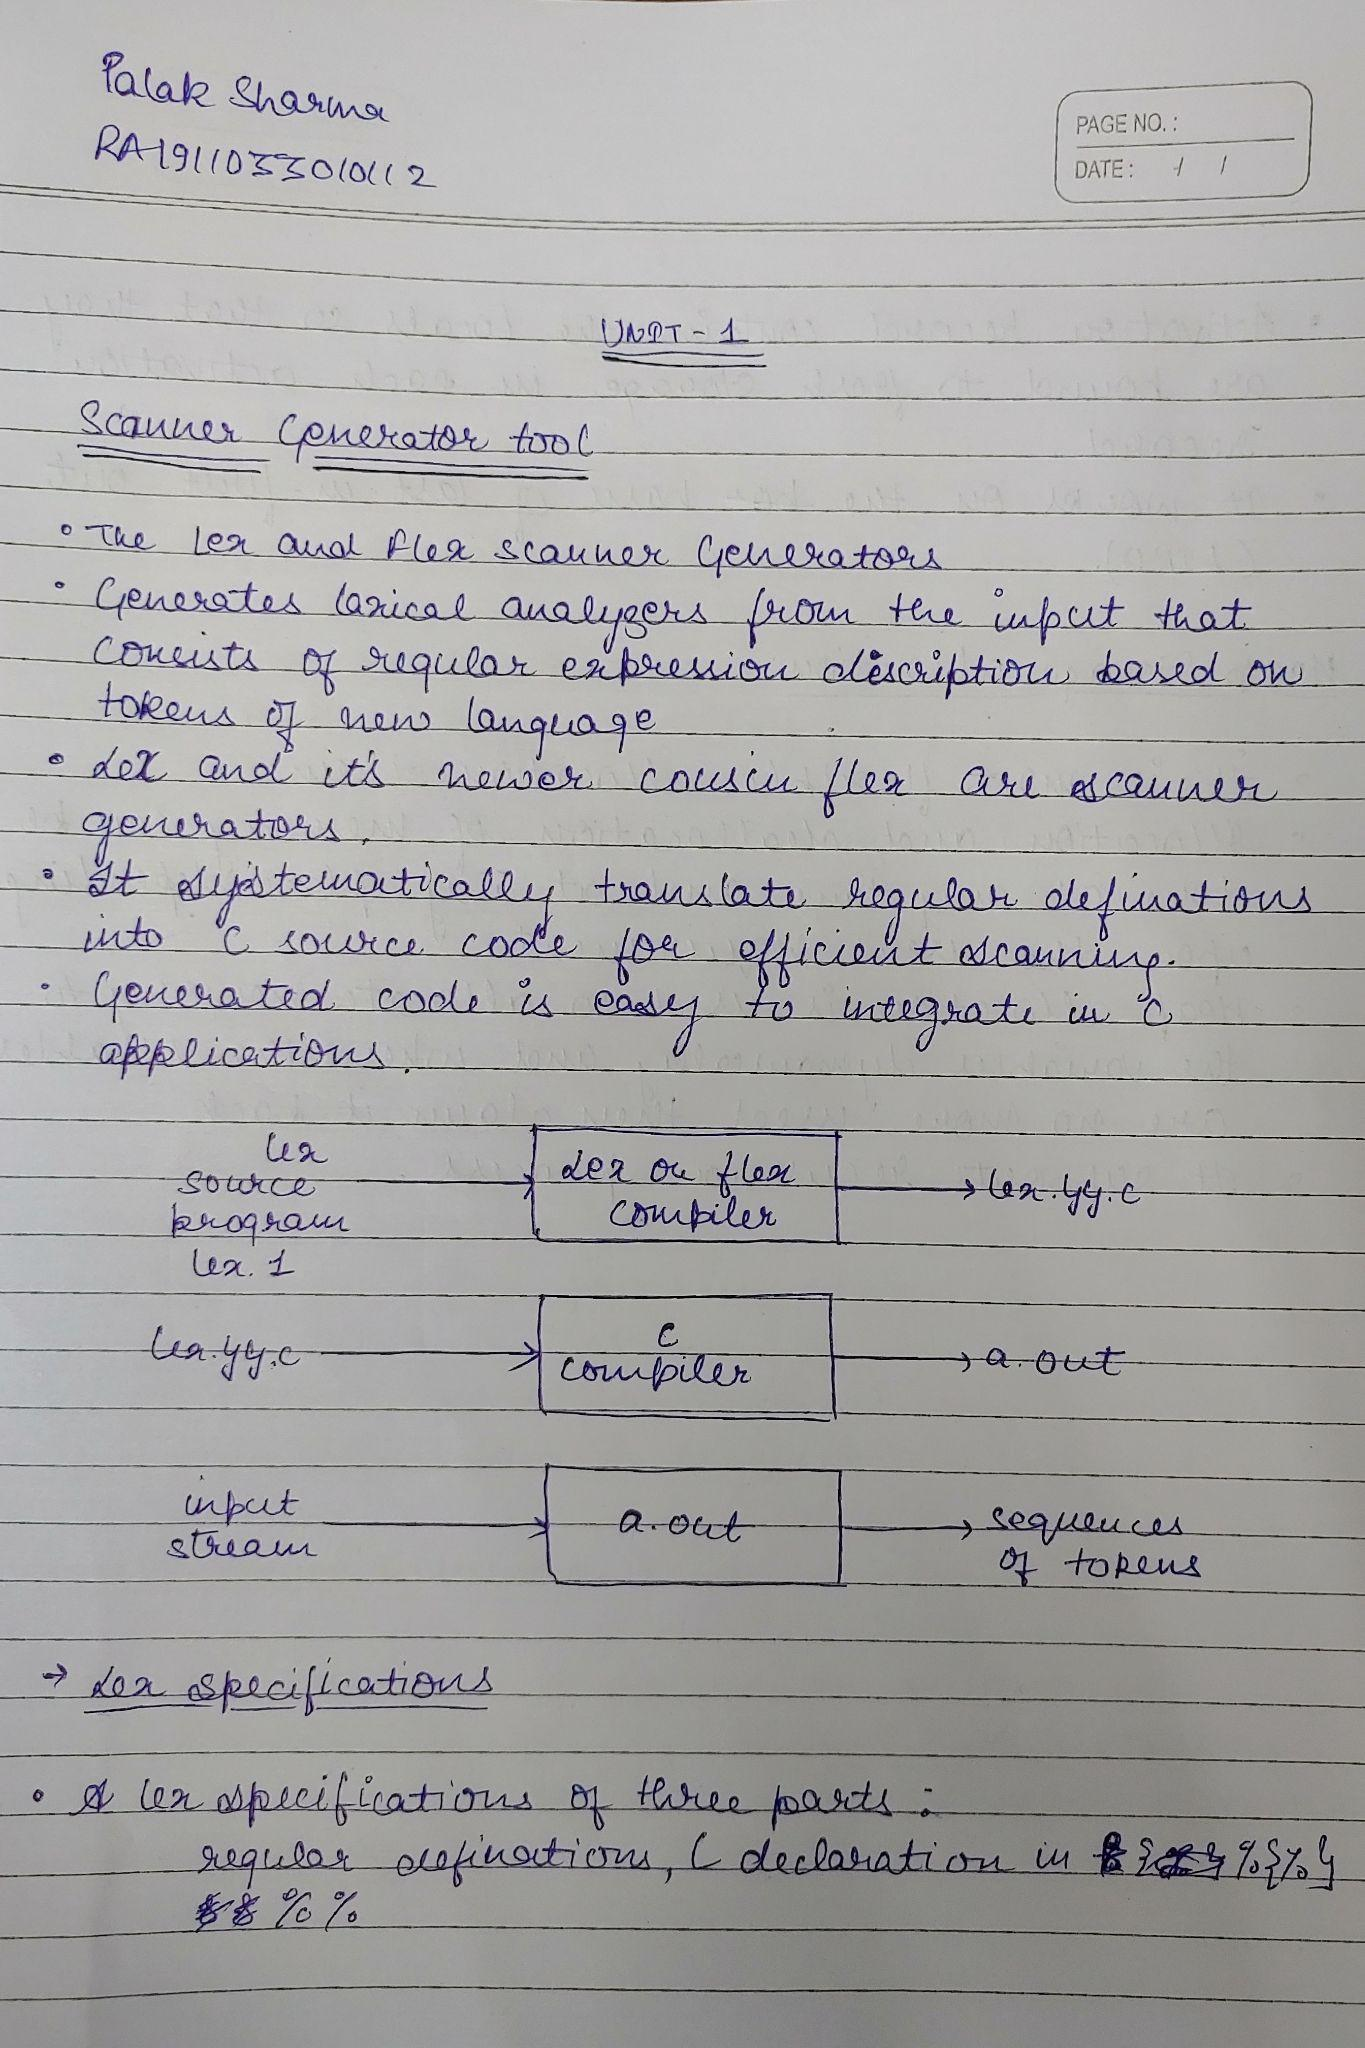 Palak Sharma
RA1911033010112
PAGE NO.:
DATE: / /
UNIT - 1
Scanner Generator tool
• The lex and flex scanner Generators
• Generates laxical analyzers from the input that
consists of regular expression description based on
tokens of new language
• Lex and it's newer cousin flex are scanner
generators.
• It systematically translate regular definations
into C source code for efficient scanning.
• Generated code is easy to integrate in C
applications.
lex
source
program
lex. 1
Lex or flex
compiler
lex.yy.c
lex.yy.c
C
compiler
a.out
input
stream
a.out
sequences
of tokens
→ Lex specifications
• A lex specifications of three parts :
regular definations, C declaration in %{%}
%%